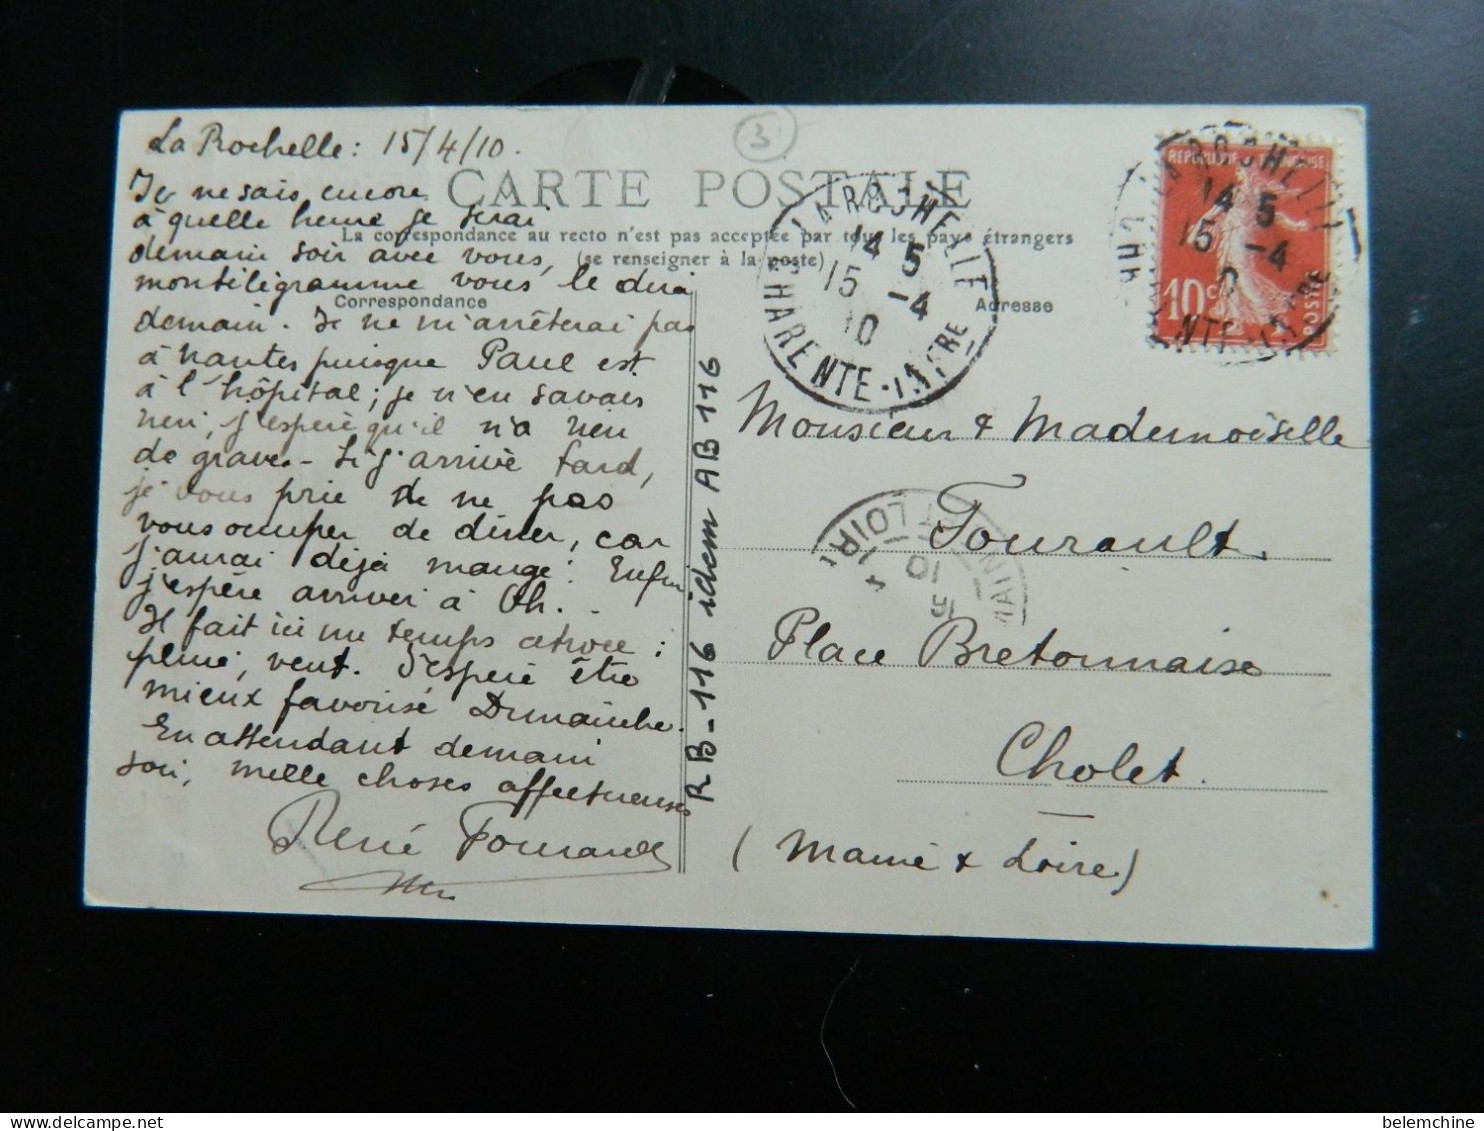 La Rochelle : 15/4/10.
3
Je ne sais encore
à quelle heure je serai
demain soir avec vous,
mon télégramme vous le dira
demain. Je ne m'arrêterai pas
à nantes puisque Paul est
à l'hôpital ; je n'en savais
rien, j'espère qu'il n'a rien
de grave. - Si j'arrive tard,
je vous prie de ne pas
vous occuper de dîner, car
j'aurai déjà mangé. Enfin
j'espère arriver à 9h.
Il fait ici un temps atroce :
pluie, vent. J'espère être
mieux favorisé Dimanche.
En attendant demain
soir, mille choses affectueuses
René Fourault
CARTE POSTALE
La correspondance au recto n'est pas acceptée par tous les pays étrangers
(se renseigner à la poste)
Correspondance
Adresse
RB-116 idem AB 116
LA ROCHELLE
14 5
15 -4
10
CHARENTE-INFRE
REPUBLIQUE FRANÇAISE
10c
POSTES
LA ROCHELLE
14 5
15 -4
Monsieur & Mademoiselle
Fourault
Place Bretonnaise
Cholet.
(Maine & Loire)
belemchine